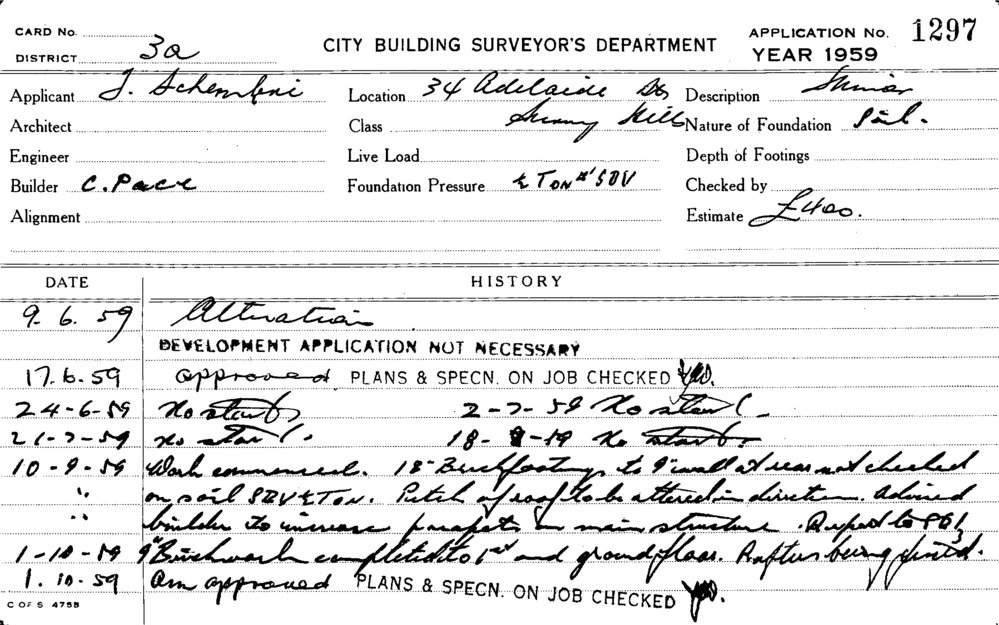 CARD No.
DISTRICT 3a
CITY BUILDING SURVEYOR'S DEPARTMENT
APPLICATION No. 1297
YEAR 1959
Applicant J. Schembri Location 34 Adelaide St, Description
Architect Class Surry Hills Nature of Foundation Soil.
Engineer Live Load Depth of Footings
Builder C. Pace Foundation Pressure Ton SBV Checked by
Alignment Estimate £400.
DATE HISTORY
9. 6. 59 Alteration
DEVELOPMENT APPLICATION NOT NECESSARY
17.6.59 approved PLANS & SPECN. ON JOB CHECKED
24-6-59 No start. 2-7-59 No start.
21-7-59 No start. 18-8-59 No start.
10-9-59 Work commenced. 18" Brick footings to 9" wall at rear not checked
" on soil SBV Ton. Pitch of roof to be altered in direction. Advised
" builder to increase parapets on main structure.
1-10-59 9" Brickwork completed to 1st and ground floor. Rafters being
1.10.59 Am approved PLANS & SPECN. ON JOB CHECKED
C OF S 475B